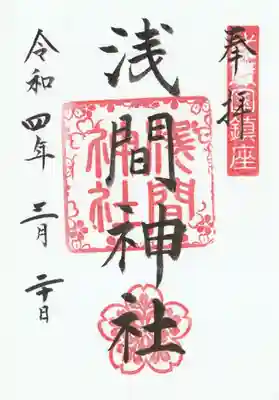 奉拝
国鎮座
浅間神社
淺間
神社
令和四年三月二十日